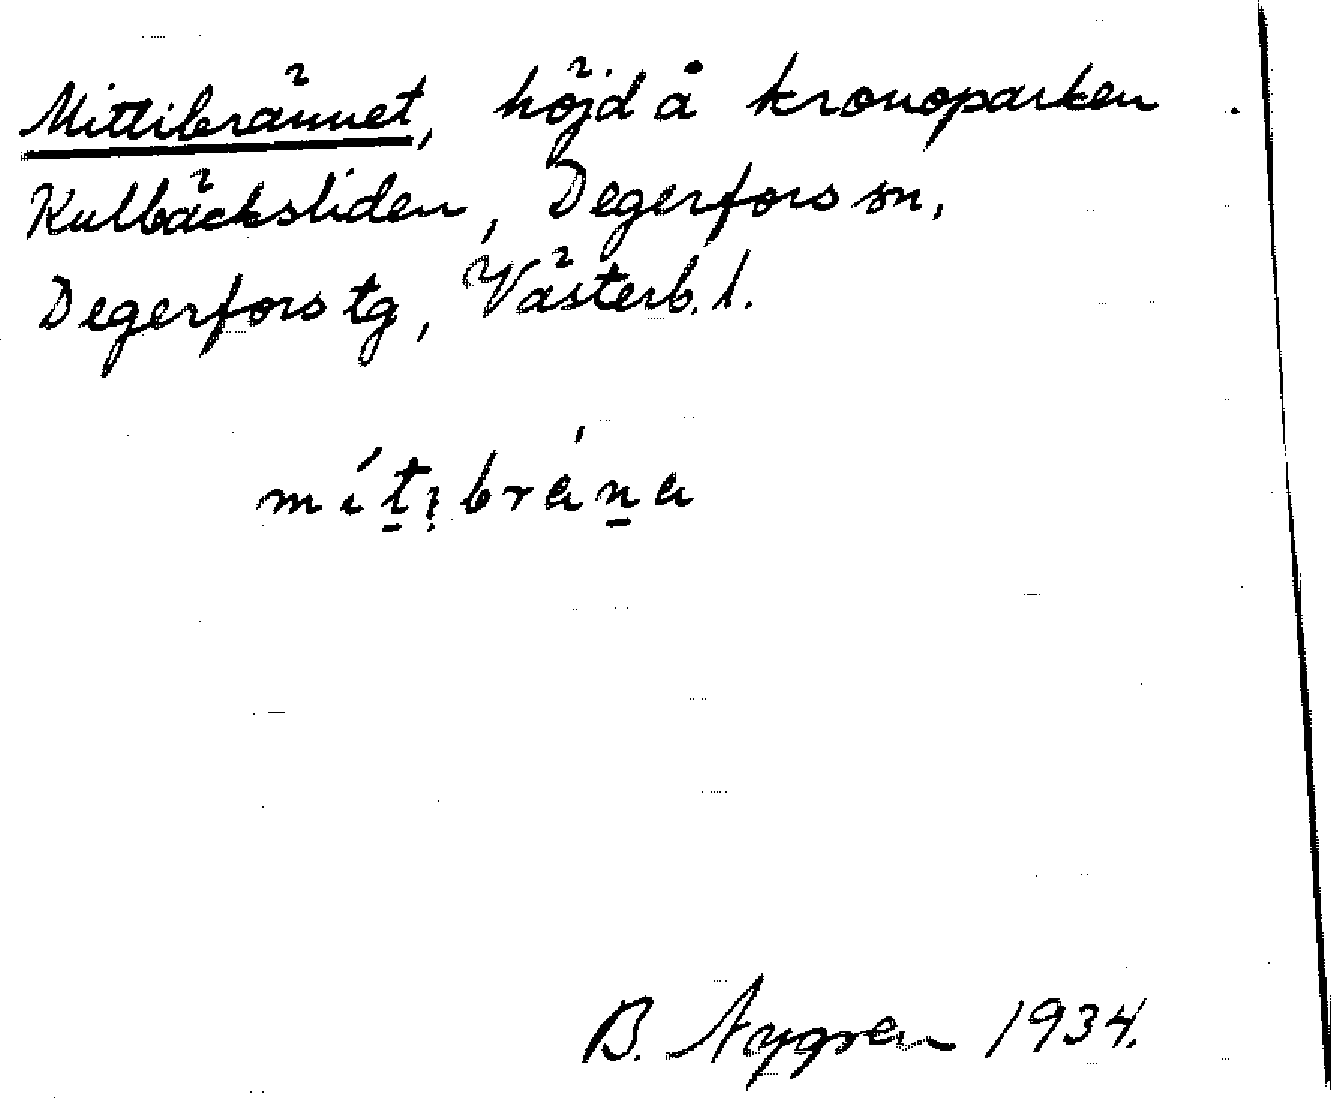 Mittibrännet, höjd å kronoparken
Kulbäcksliden, Degerfors sn,
Degerfors tg, Västerb. l.
mít̠ı̣bráṉa
B. Nygren 1934.